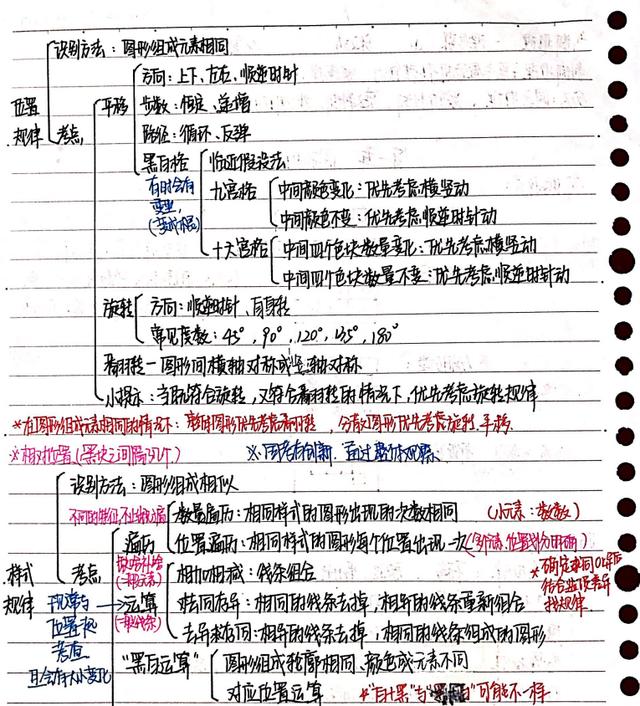 识别方法：图形组成元素相同
位置
规律
考点
平移
方向：上下、左右、顺逆时针
步数：恒定、递增
路径：循环、反弹
黑白格
有时会有
变业，
就近假设法
九宫格
中间颜色变化：优先考虑横竖动
中间颜色不变：优先考虑顺逆时针动
十六宫格
中间四个色块数量变化：优先考虑横竖动
中间四个色块数量不变：优先考虑顺逆时针动
旋转
方向：顺逆时针、自身转
常见度数：45°，90°，120°，135°，180°
翻转－图形间横轴对称或竖轴对称
小提示：当既符合旋转，又符合翻转的情况下，优先考虑旋转规律
*在图形组成元素相同的情况下：整的图形优先考虑翻转，分散图形优先考虑旋转、平移.
*相对位置（黑块之间隔几个）
※图若有创新，通过整体观察.
识别方法：图形组成相似
样式
规律
考点
不同的特征，不止线心痛
遍历
数量遍历：相同样式的图形出现的次数相同
（小元素：数数）
位置遍历：相同样式的图形每个位置出现一次
缺啥补啥
运算
相加相减：线条组合
求同存异：相同的线条去掉，相异的线条重新组合
去异存同：相异的线条去掉，相同的线条组成的图形
*确定求同or存异
结合选项差异
找规律.
可常与
位置规
考查
且会有大小变化
"黑白运算"
图形组成轮廓相同、颜色或元素不同
对应位置运算
*"白+黑"与"黑+白"可能不一样